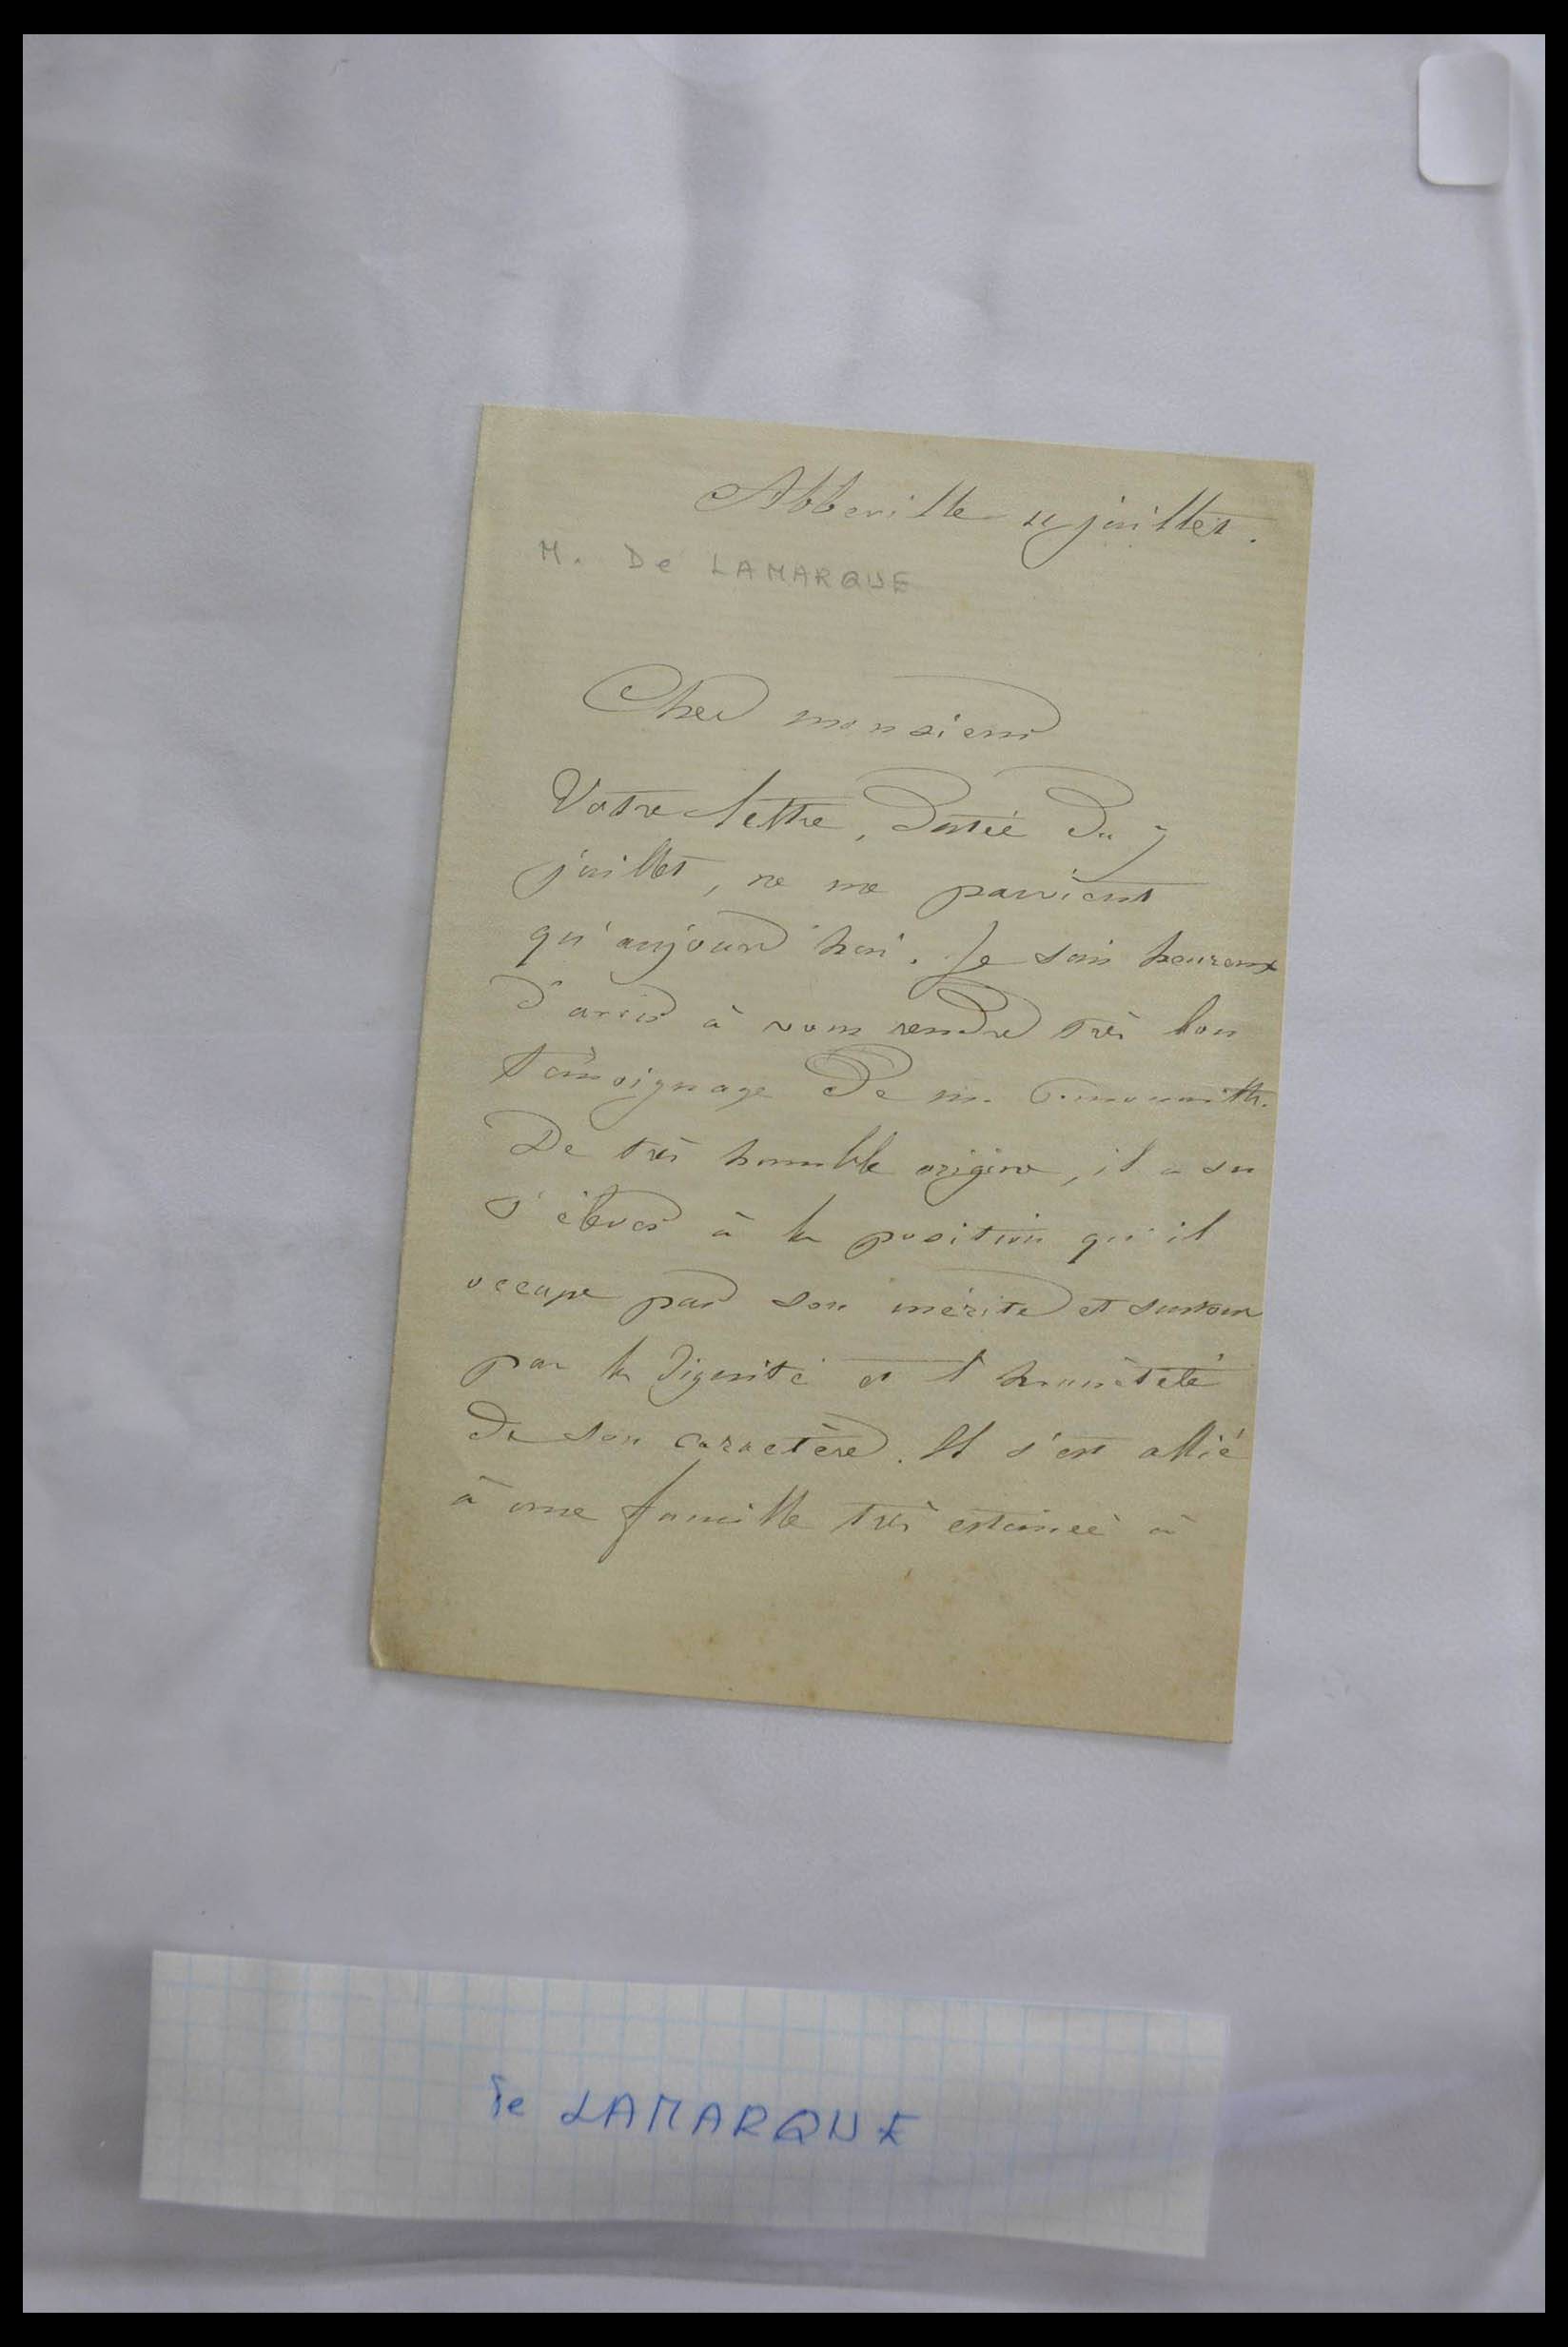 Abbeville 11 juillet.
M. De LAMARQUE
Cher monsieur
Votre lettre, datée du 7
juillet, ne me parvient
qu'aujourd'hui. Je suis heureux
d'avoir à vous rendre très bon
témoignage de m.
De très humble origine, il a su
s'élever à la position qu'il
occupe par son mérite et surtout
par la dignité et l'honnêteté
de son caractère. Il s'est allié
à une famille très estimée à
de LAMARQUE